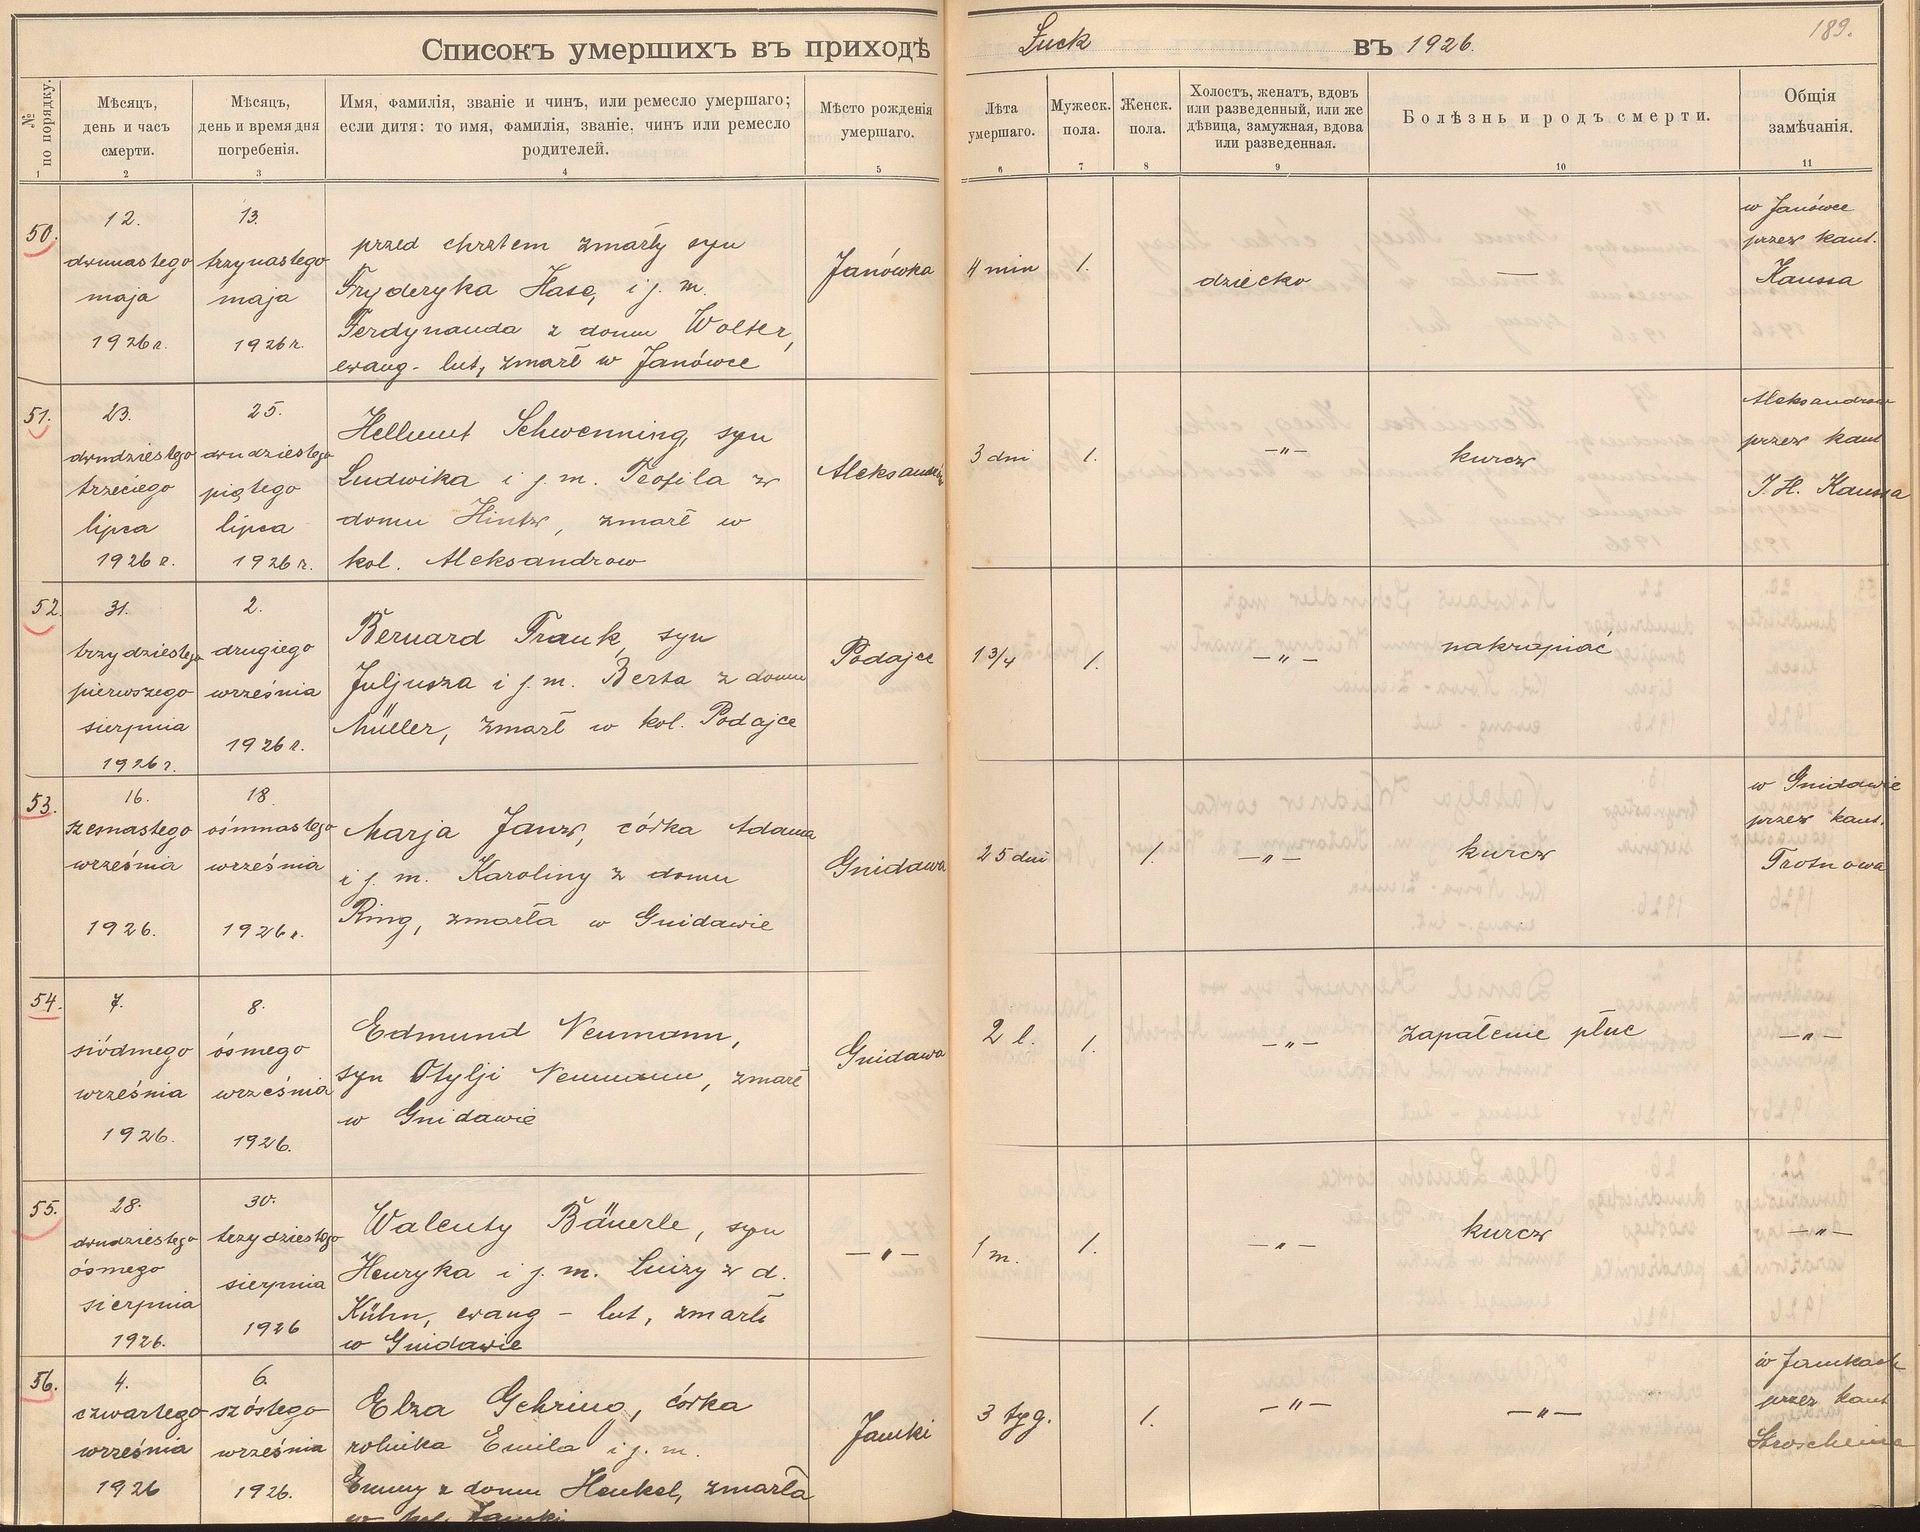 Списокъ умершихъ въ приходѣ Łuck въ 1926.
189.
№ по порядку.
Мѣсяцъ,
день и часъ
смерти.
Мѣсяцъ,
день и время дня
погребенія.
Имя, фамилія, званіе и чинъ, или ремесло умершаго;
если дитя: то имя, фамилія, званіе, чинъ или ремесло
родителей.
Мѣсто рожденія
умершаго.
Лѣта
умершаго.
Мужеск.
пола.
Женск.
пола.
Холостъ, женатъ, вдовъ
или разведенный, или же
дѣвица, замужная, вдова
или разведенная.
Болѣзнь и родъ смерти.
Общія
замѣчанія.
1 2 3 4 5 6 7 8 9 10 11
50.
12.
dwunastego
maja
1926 r.
13.
trzynastego
maja
1926 r.
przed chrztem zmarły syn
Fryderyka Hase, i j. m.
Ferdynanda z domu Wolter,
ewang. lut, zmarł w Janówce
Janówka
4 min
1.
dziecko
—
w Janówce
przez kant.
Kaussa
51.
23.
dwudziestego
trzeciego
lipca
1926 r.
25.
dwudziestego
piątego
lipca
1926 r.
Hellmut Schwenning, syn
Ludwika i j. m. Teofila z
domu Hintz, zmarł w
kol. Aleksandrow
Aleksandrów
3 dni
1.
—„—
kurcz
Aleksandrow
przez kant
J. H. Kaussa
52.
31.
trzydziestego
pierwszego
sierpnia
1926 r.
2.
drugiego
września
1926 r.
Bernard Frank, syn
Juljusza i j. m. Berta z domu
Müller, zmarł w kol. Podajce
Podajce
1 3/4
1.
—„—
nakrapiać
53.
16.
szesnastego
września
1926.
18
ośmnastego
września
1926 r.
Marja Janz, córka Adama
i j. m. Karoliny z domu
Ring, zmarła w Gnidawie
Gnidawa
25 dni
1.
—„—
kurcz
w Gnidawie
przez kant.
Trotnowa
54.
7.
siódmego
września
1926.
8.
ósmego
września
1926.
Edmund Neumann,
syn Otylji Neumann, zmarł
w Gnidawie
Gnidawa
2 l.
1.
—„—
zapalenie płuc
—„—
55.
28.
dwudziestego
ósmego
sierpnia
1926.
30.
trzydziestego
sierpnia
1926
Walenty Bäuerle, syn
Henryka i j. m. Luizy z d.
Kühn, ewang - lut, zmarł
w Gnidawie
—„—
1 m.
1.
—„—
kurcz
—„—
56.
4.
czwartego
września
1926
6.
szóstego
września
1926.
Elza Gehring, córka
rolnika Emila i j. m.
Emmy z domu Henkel, zmarła
w kol. Jamki
Jamki
3 tyg.
1.
—„—
—„—
w Jamkach
przez kant
Stroscheina